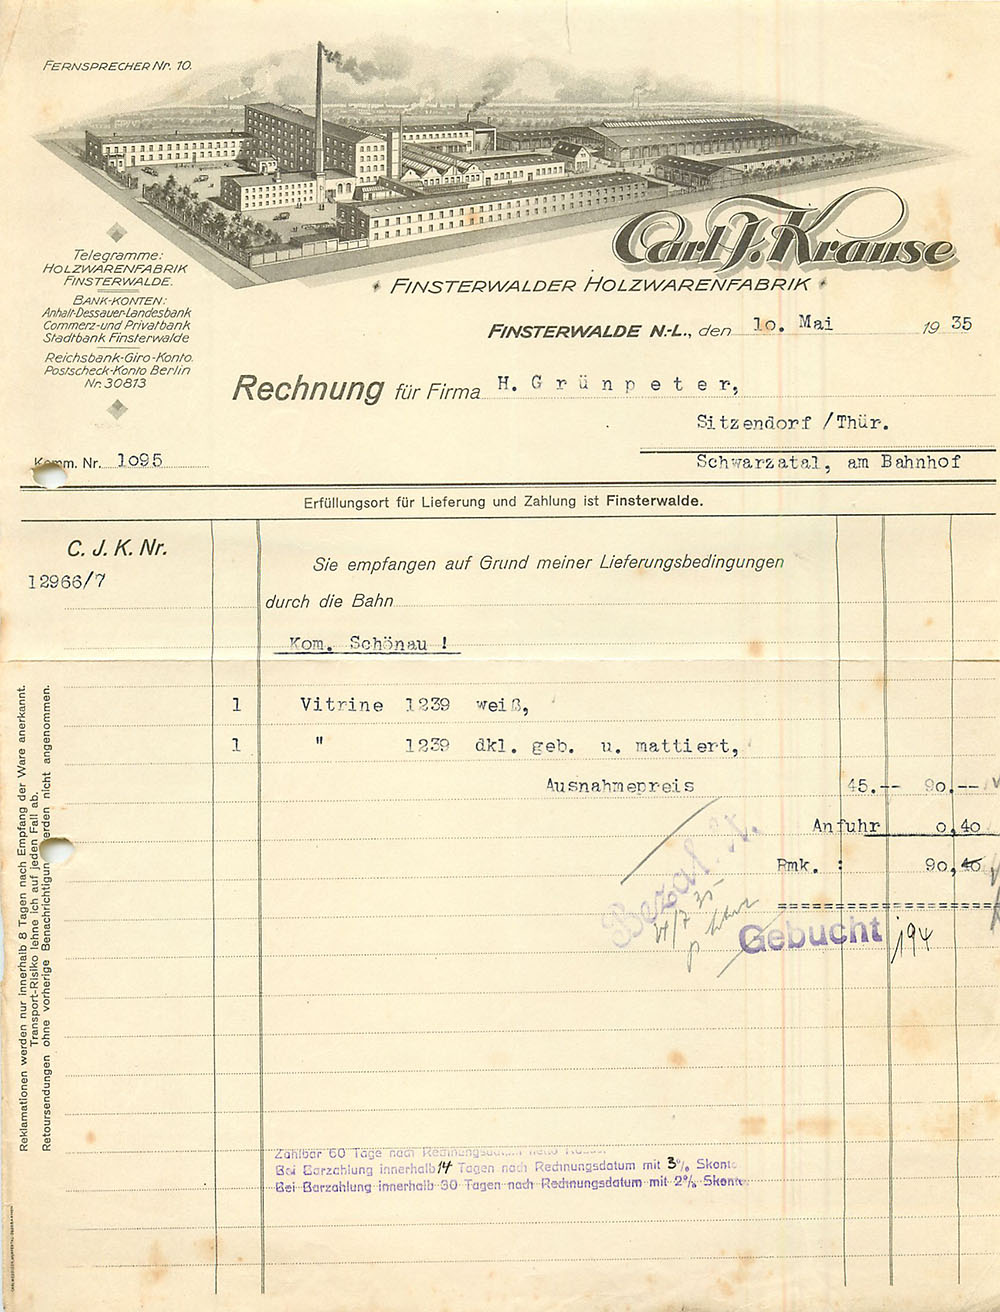 FERNSPRECHER Nr. 10.
Carl J. Krause
FINSTERWALDER HOLZWARENFABRIK
Telegramme:
HOLZWARENFABRIK
FINSTERWALDE.
BANK-KONTEN:
Anhalt-Dessauer-Landesbank
Commerz-und Privatbank
Stadtbank Finsterwalde
Reichsbank-Giro-Konto.
Postscheck-Konto Berlin
Nr. 30813
FINSTERWALDE N.-L., den 10. Mai 1935
Rechnung für Firma H. Grünpeter,
Sitzendorf /Thür.
Schwarzatal, am Bahnhof
Komm. Nr. 1o95
Erfüllungsort für Lieferung und Zahlung ist Finsterwalde.
C. J. K. Nr.
12966/7
Sie empfangen auf Grund meiner Lieferungsbedingungen
durch die Bahn
Kom. Schönau !
1 Vitrine 1239 weiß,
1 " 1239 dkl. geb. u. mattiert,
Ausnahmepreis 45.-- 90.--
Anfuhr 0,40
Rmk. : 90,40
=====================
Gebucht 194
Reklamationen werden nur innerhalb 8 Tagen nach Empfang der Ware anerkannt.
Transport-Risiko lehne ich auf jeden Fall ab.
Retoursendungen ohne vorherige Benachrichtigung werden nicht angenommen.
Zahlbar 60 Tage nach Rechnungsdatum netto Kasse.
Bei Barzahlung innerhalb 14 Tagen nach Rechnungsdatum mit 3% Skonto
Bei Barzahlung innerhalb 30 Tagen nach Rechnungsdatum mit 2% Skonto.